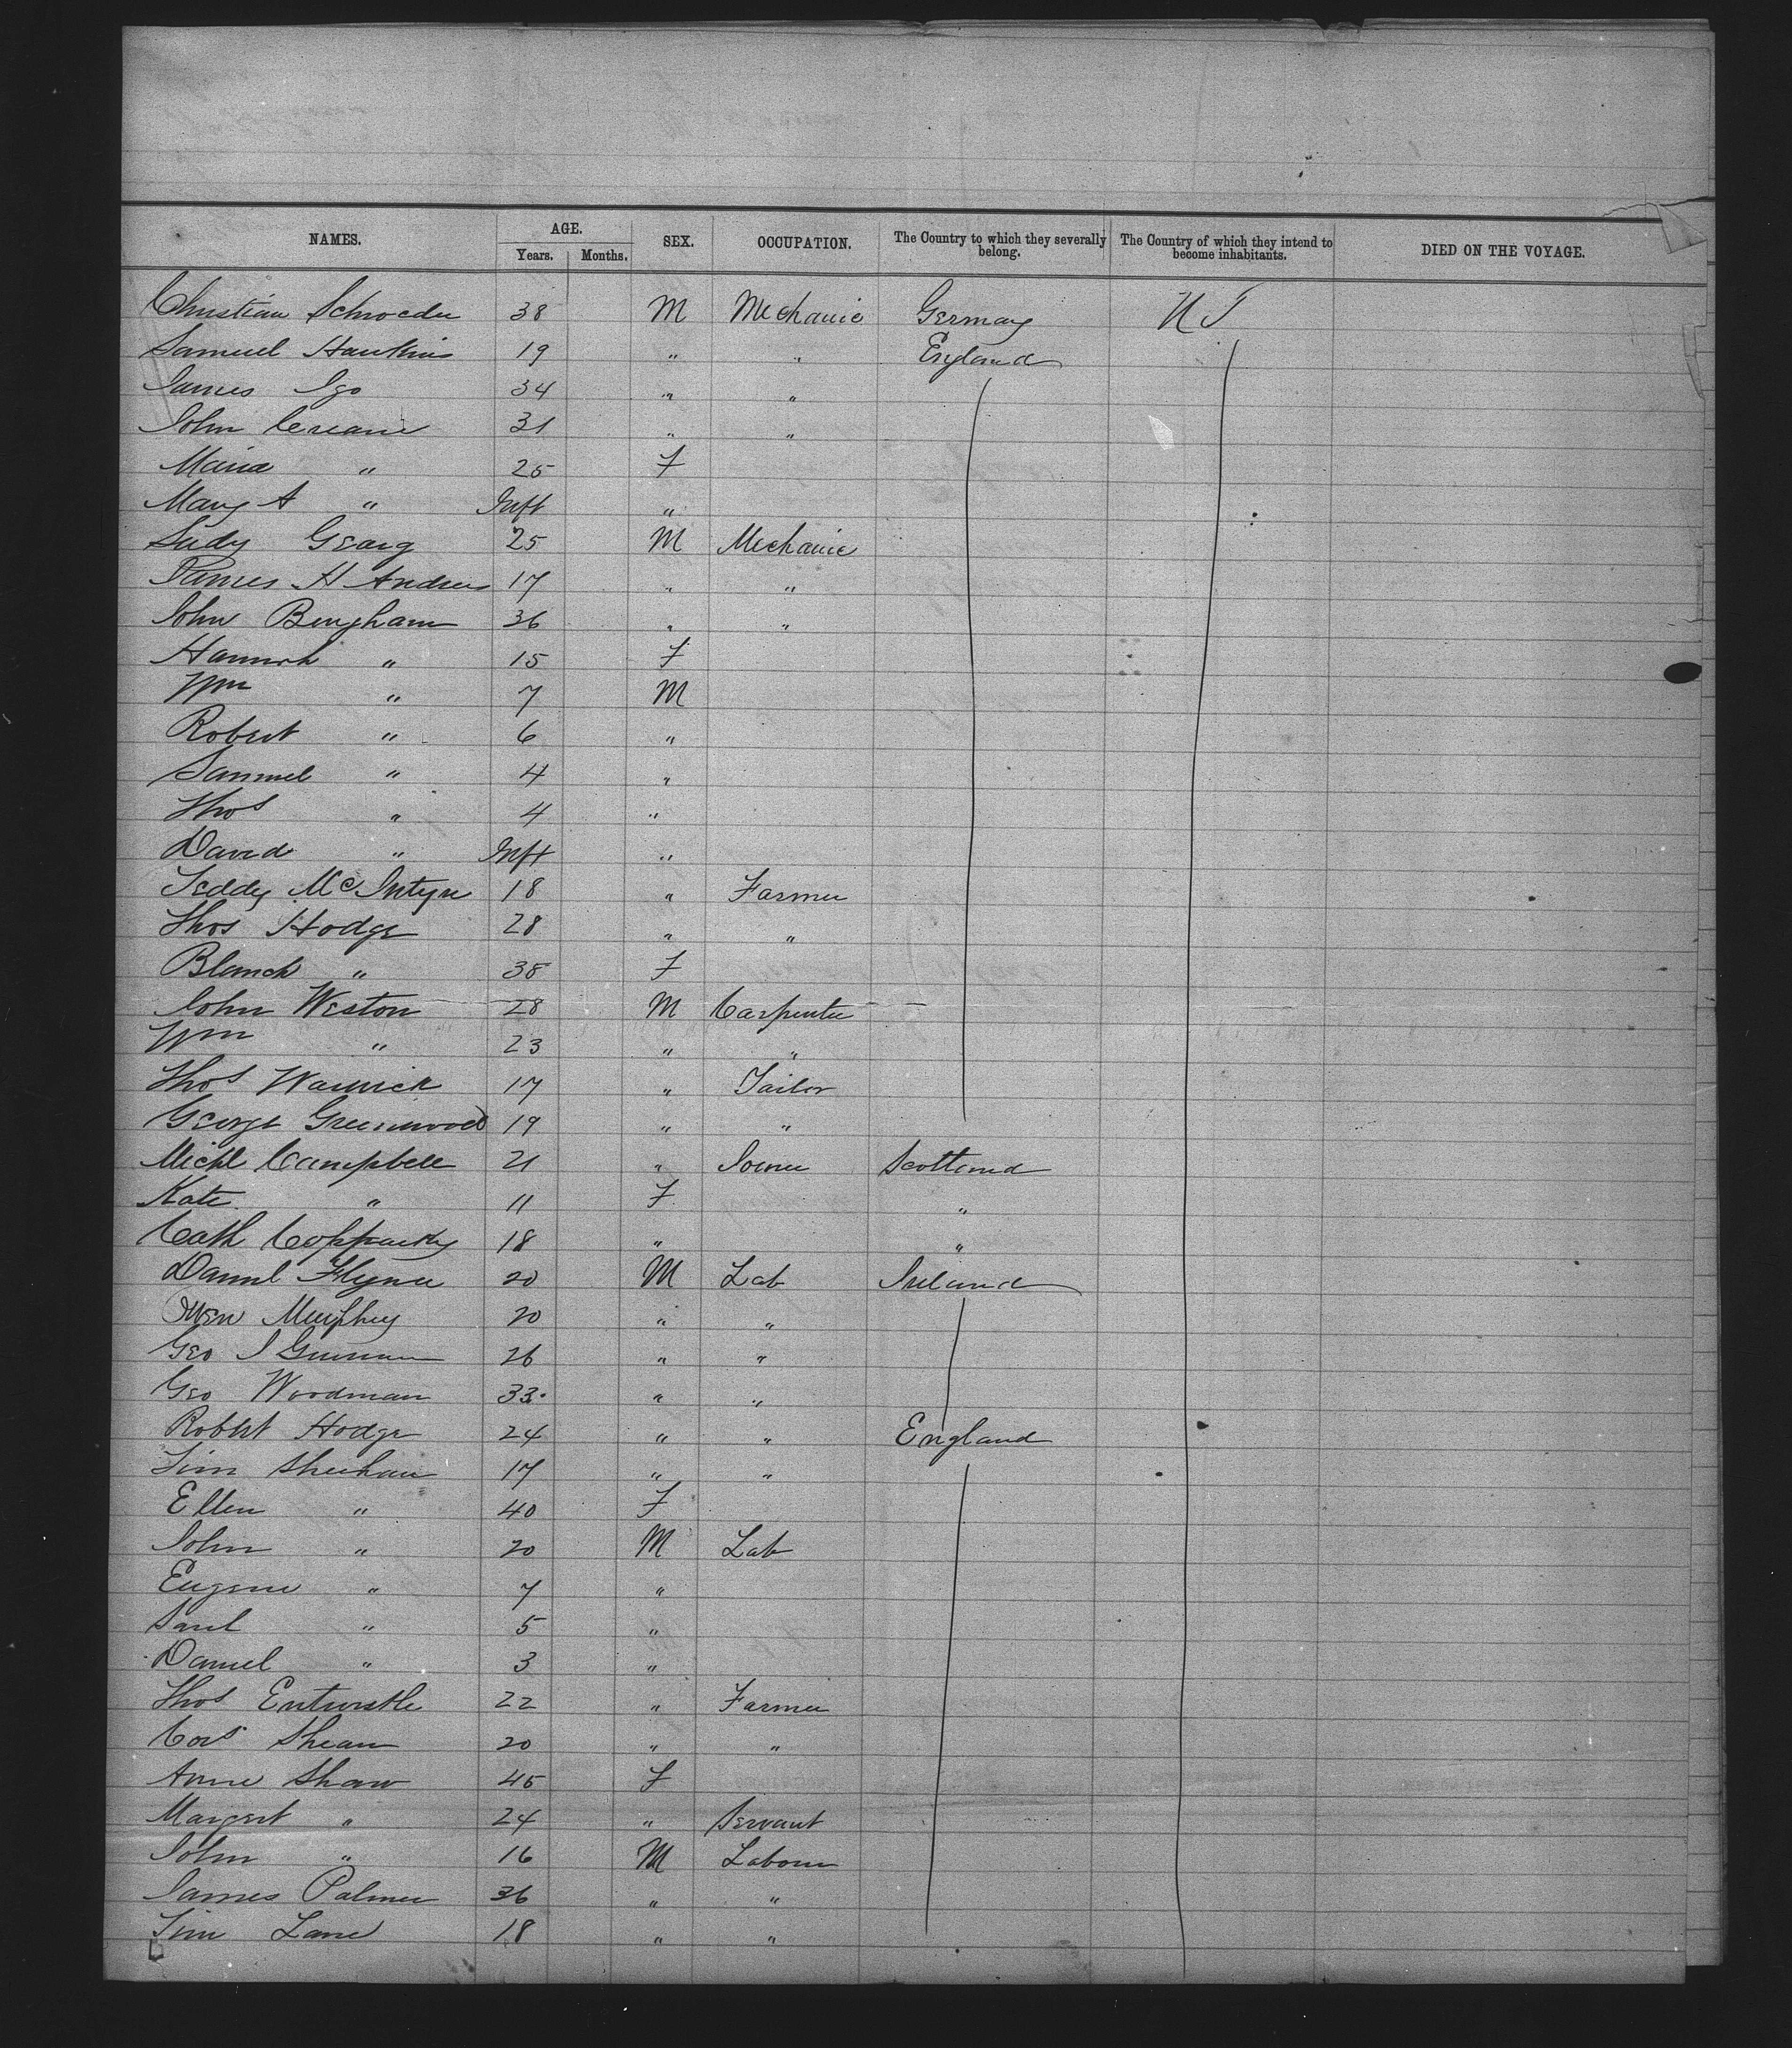 NAMES. AGE. SEX. OCCUPATION. The Country to which they severally belong. The Country of which they intend to become inhabitants. DIED ON THE VOYAGE.
Years. Months.
Christian Schroeder 38 M Mechanic Germany U S
Samuel Hawkins 19 " " England
James Igo 34 " "
John Creane 31 " "
Maria " 25 F
Mary A " Inft "
Georg 25 M Mechanic
James H Andrews 17 " "
John Bingham 36 " "
Hannah " 15 F
Wm " 7 M
Robert " 6 "
Samuel " 4 "
Thos " 4 "
David " Inft "
Teddy McIntyre 18 " Farmer
Thos Hodge 28 " "
Blanch " 38 F
John Weston 28 M Carpenter
Wm " 23 " "
Thos Warwick 17 " Tailor
George Greenwood 19 " "
Michl Campbell 21 " Joiner Scotland
Kate " 11 F "
Cath 18 " "
Daniel Flynn 20 M Lab Ireland
Owen Murphy 20 " "
Geo 26 " "
Geo Woodman 33 " "
Robert Hodge 24 " " England
Tim Sheehan 17 " "
Ellen " 40 F
John " 20 M Lab
Eugene " 7 "
" 5 "
Daniel " 3 "
Thos Entwistle 22 " Farmer
20 " "
Anne Shaw 45 F
Margert " 24 " Servant
John " 16 M Labour
James Palmer 36 " "
Tim Lane 18 " "